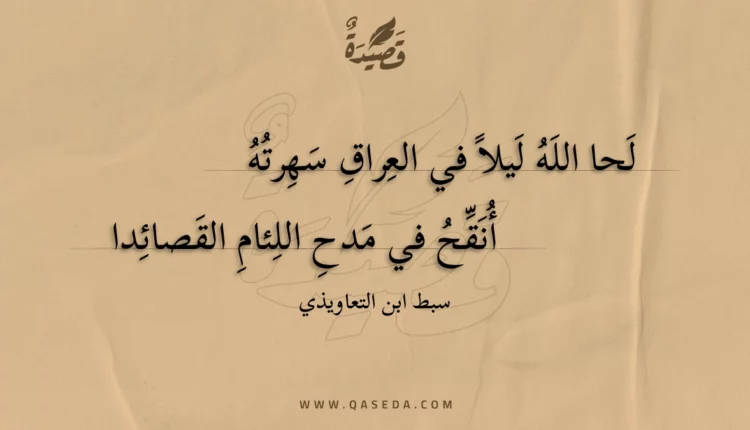 قَصِيْدَةٌ
لَحا اللَهُ لَيلاً في العِراقِ سَهِرتُهُ
أُنَقِّحُ في مَدحِ اللِئامِ القَصائِدا
سبط ابن التعاويذي
WWW.QASEDA.COM